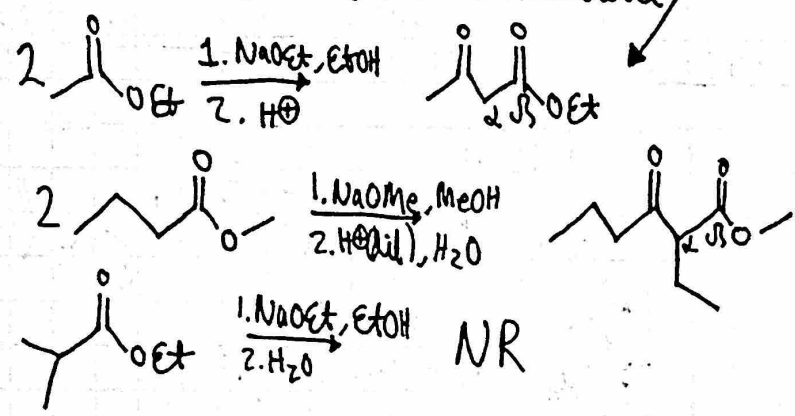 O O O
2 OEt 1. NaOEt, EtOH 2. H⊕ α β OEt
O O O
2 O 1. NaOMe, MeOH 2. H⊕(dil), H2O α β O
O
OEt 1. NaOEt, EtOH 2. H2O NR